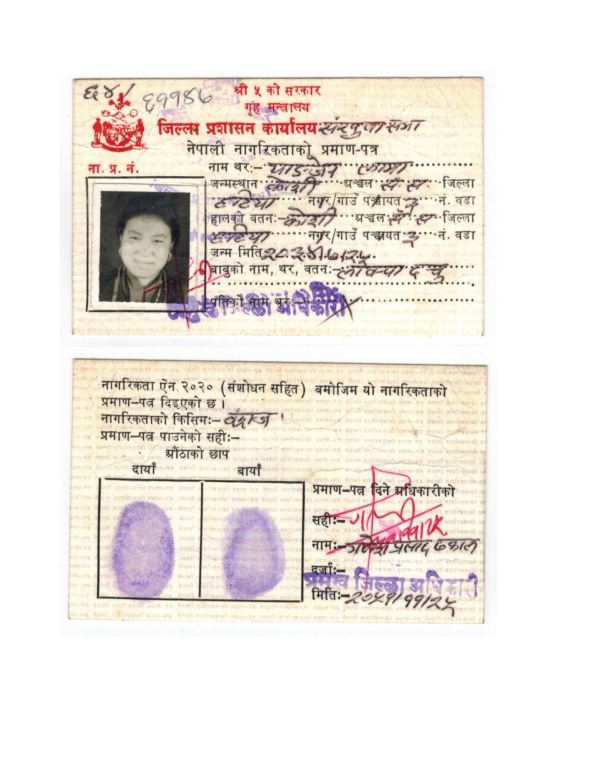 ६४/ ६११४६
श्री ५ को सरकार
गृह मन्त्रालय
जिल्ला प्रशासन कार्यालय संखुवासभा
नेपाली नागरिकताको प्रमाण-पत्र
ना. प्र. नं.
नाम थर:- लामा
जन्मस्थान कोशी अञ्चल सं. स. जिल्ला
हटिया नगर/गाउँ पञ्चायत ३ नं. वडा
हालको वतन:- कोशी अञ्चल सं. स. जिल्ला
हटिया नगर/गाउँ पञ्चायत ३ नं. वडा
जन्म मिति
बाबुको नाम, थर, वतन:-
पतिको नाम थर:-
नागरिकता ऐन २०२० (संशोधन सहित) बमोजिम यो नागरिकताको
प्रमाण-पत्र दिइएको छ ।
नागरिकताको किसिम:- वंशज
प्रमाण-पत्र पाउनेको सही:-
औंठाको छाप
दायाँ बायाँ
प्रमाण-पत्र दिने अधिकारीको
सही:-
नाम:- प्रसाद ढकाल
दर्जा:-
प्रमुख जिल्ला अधिकारी
मिति:- २०५१/११/२५